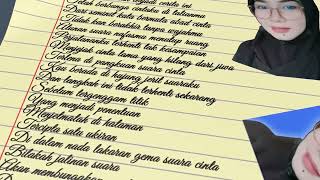 Telah berbunga cintaku di tamanmu
Dua sememt kata bermula abad cinta
Tidak kan beralun tanpa wajahmu
Alunan suara nafasmu menutup ruang
Pertemuanku terhenti tak kesampaian
Menjejak cinta lama yang hilang dari jiwa
Terlena di pangkuan suara cinta
Kau berada di hujung jerit suaraku
Dan langkah ini tidak terhenti sekarang
Sebelum tergenggam titik
Yang menjadi penentuan
Menjelmalah di halaman
Tercipta satu ukiran
Di dalam nada lakaran gema suara cinta
Bilakah jalinan suara
Akan membungakan